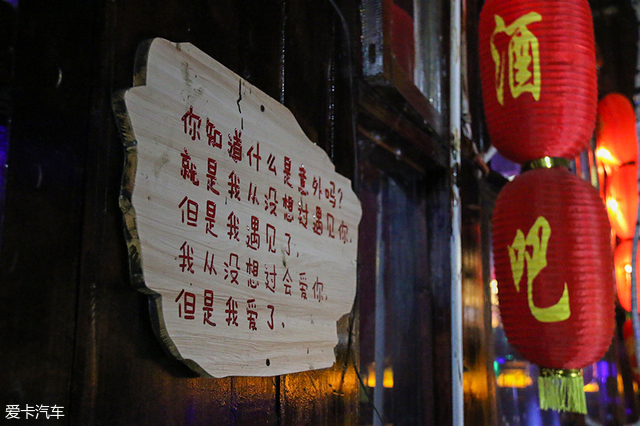 你知道什么是意外吗?
就是我从没想过遇见你.
但是我遇见了.
我从没想过会爱你.
但是我爱了.
酒
吧
爱卡汽车